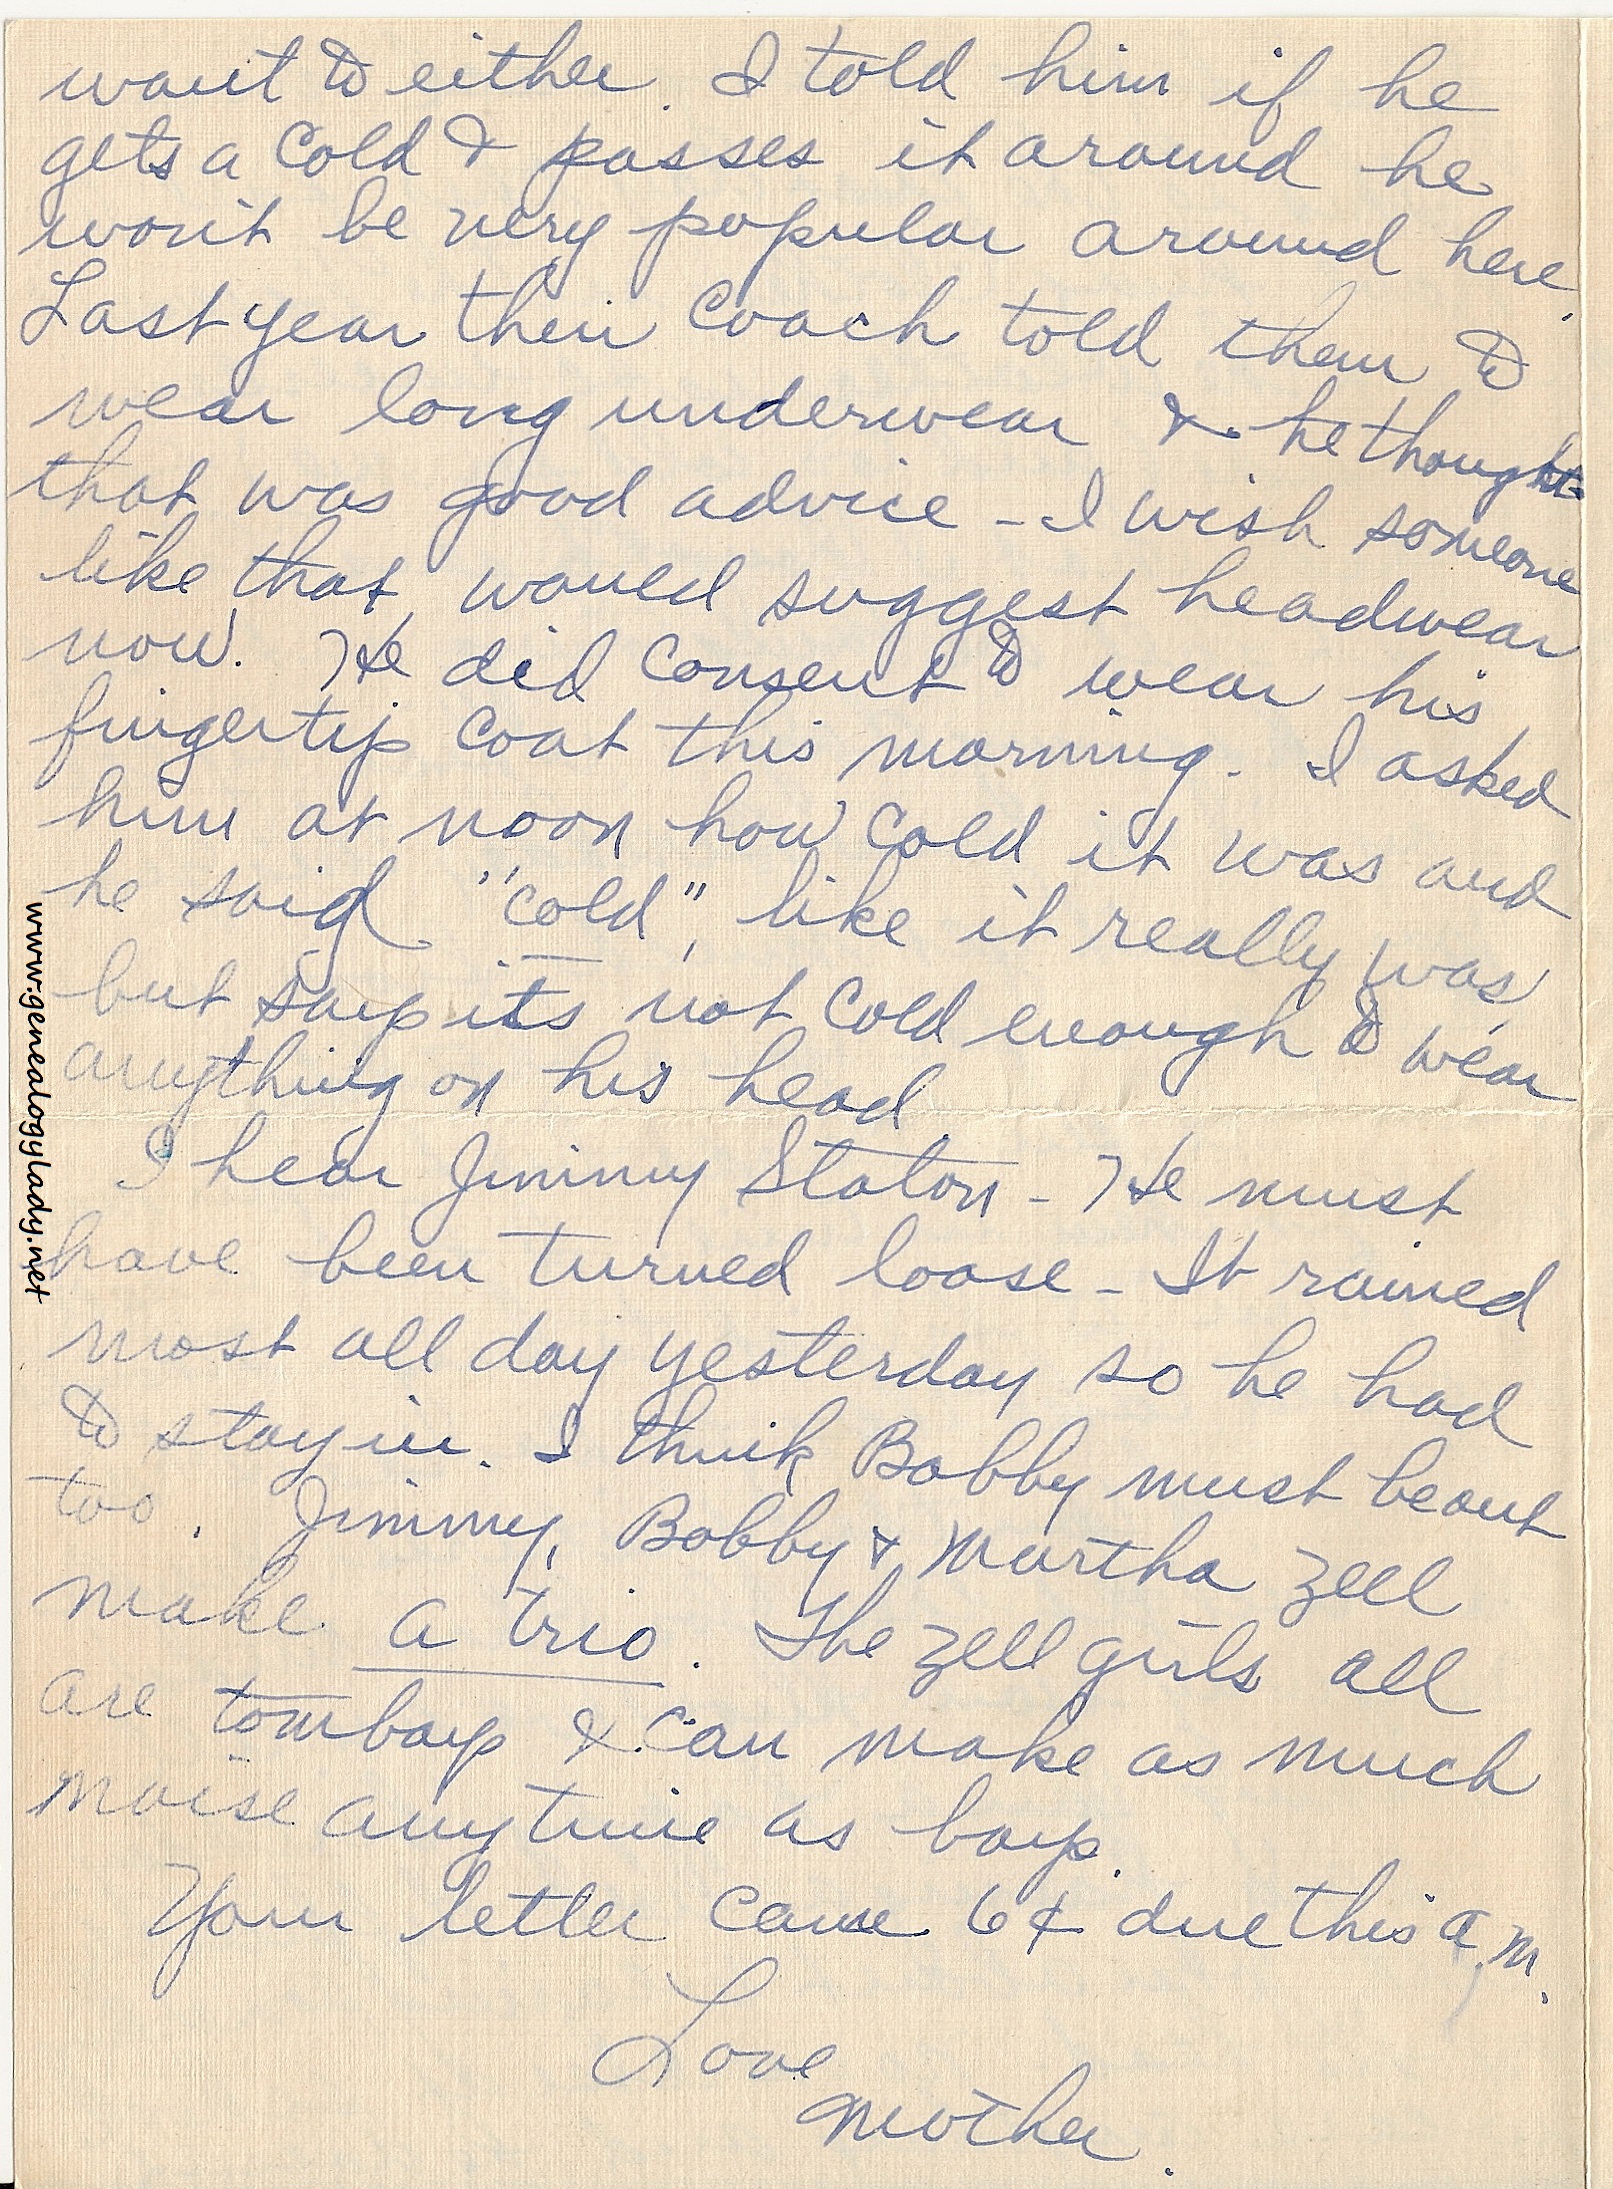 want to either. I told him if he
gets a cold & passes it around he
won't be very popular around here.
Last year their coach told them to
wear long underwear & he thought
that was good advice - I wish someone
like that would suggest headwear
now. He did consent to wear his
fingertip coat this morning. I asked
him at noon how cold it was and
he said "cold", like it really was,
but says its not cold enough to wear
anything on his head.
I hear Jimmy Staton - He must
have been turned loose - It rained
most all day yesterday so he had
to stay in. I think Bobby must be out
too. Jimmy, Bobby & Martha Zell
make a trio. The Zell girls all
are tomboys & can make as much
noise anytime as boys.
Your letter came 6¢ due this a.m.
Love
Mother.
www.genealogylady.net